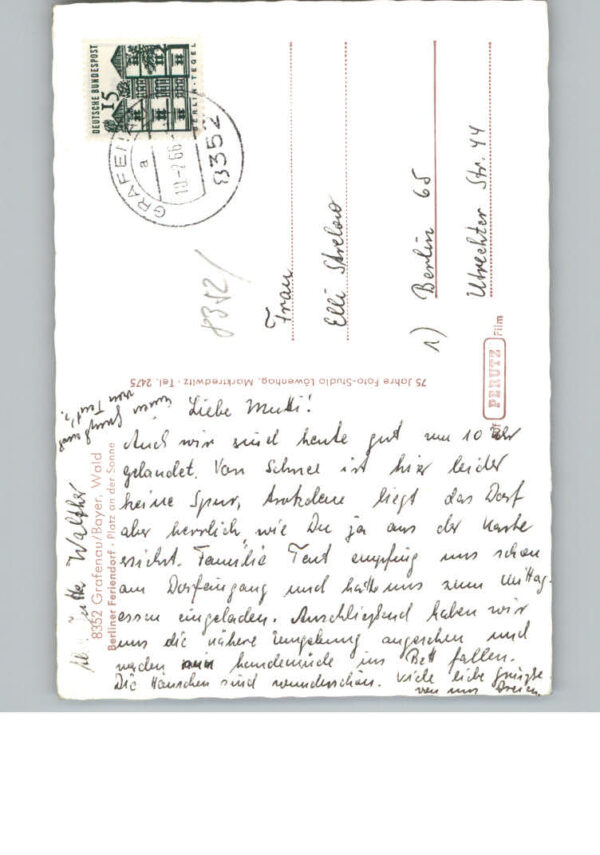 DEUTSCHE BUNDESPOST
15
BERLIN-TEGEL
GRAFENAU
a
10.-7.66.
8352
8352/
Frau
Elli Strelow
1) Berlin 65
Utrechter Str. 44
75 Jahre Foto-Studio Löwenhag, Marktredwitz · Tel. 2475
PERUTZ Film
8352 Grafenau/Bayer. Wald
Berliner Feriendorf · Platz an der Sonne
Liebe Mutti!
Auch wir sind heute gut um 10 Uhr
gelandet. Von Schnee ist hier leider
keine Spur, trotzdem liegt das Dorf
aber herrlich, wie Du ja aus der Karte
ersiehst. Familie Tent empfing uns schon
am Dorfeingang und hatte uns zum Mittag-
essen eingeladen. Anschließend haben wir
uns die nähere Umgebung angesehen und
werden nun hundemüde ins Bett fallen.
Die Häuschen sind wunderschön. Viele liebe Grüße
von uns Dreien.
Jutta Walther
einen Gruß auch
von Tent's.